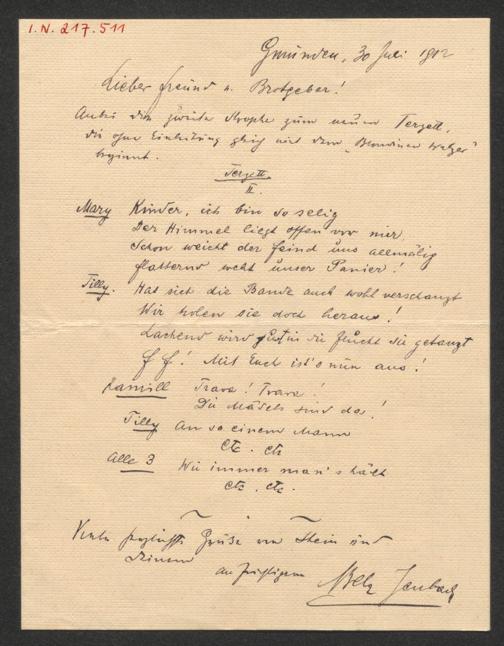 I.N. 217.511
Gmunden, 30 Juli 1912
Lieber Freund u. Brotgeber!
Anbei die zweite Strophe zum neuen Terzett,
die ohne Einleitung gleich mit dem „Blondinen Walzer"
beginnt.
Terzett
II.
Mary Kinder, ich bin so selig
Der Himmel liegt offen vor mir,
Schon weicht der Feind uns allmälig
flatternd weht unser Panier!
Tilly. Hat sich die Bande auch wohl verschanzt
Wir holen sie doch heraus!
Lachend wird in die Flucht sie getanzt
ff! Mit Euch ist's nun aus!
Kamill Trara! Trara!
Die Mädels sind da!
Tilly An so einem Mann
etc. etc
Alle 3 Wie immer man's hält
etc. etc.
Viele Grüße von Stein und
Deinem
aufrichtigen
Jenbach